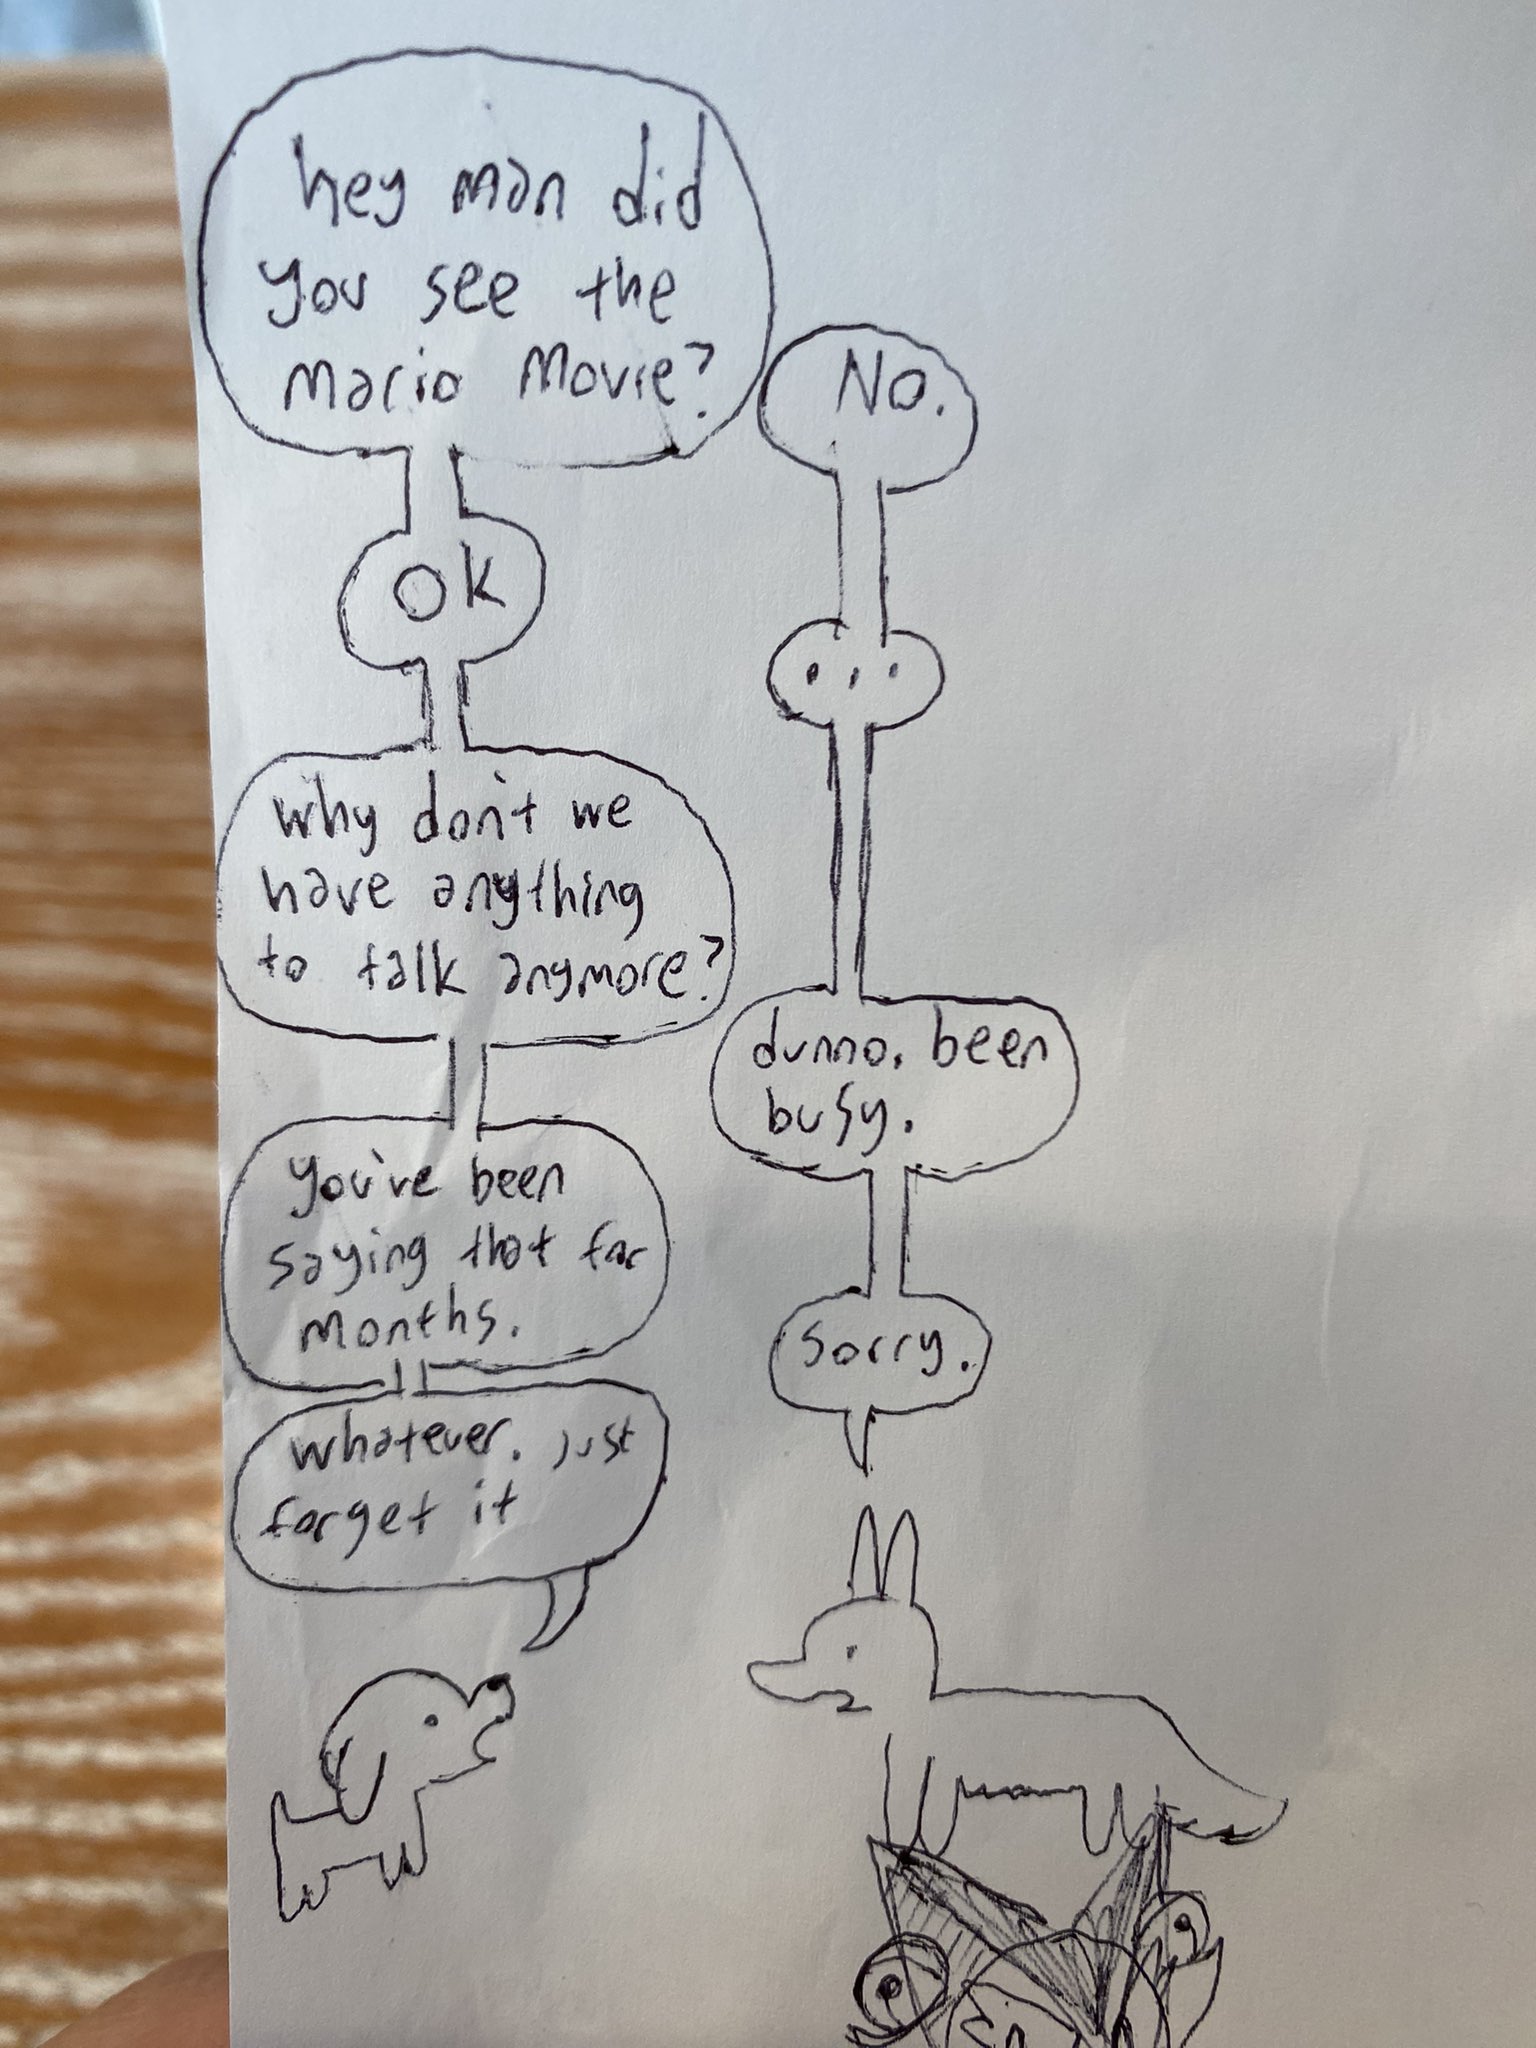 hey man did
you see the
Mario Movie?
No.
OK
...
why don't we
have anything
to talk anymore?
dunno. been
busy.
you've been
saying that for
months.
Sorry.
whatever. just
forget it